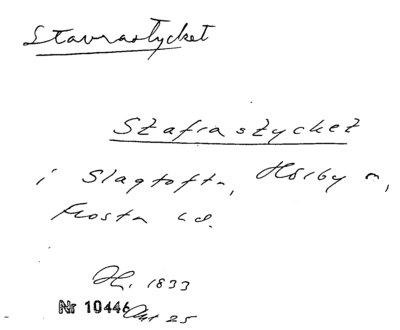 Stavrastycket
Stafrastycket
i Slagtofta, Hörby s,
Frosta hd.
H. 1833
Nr 10446 Akt 25